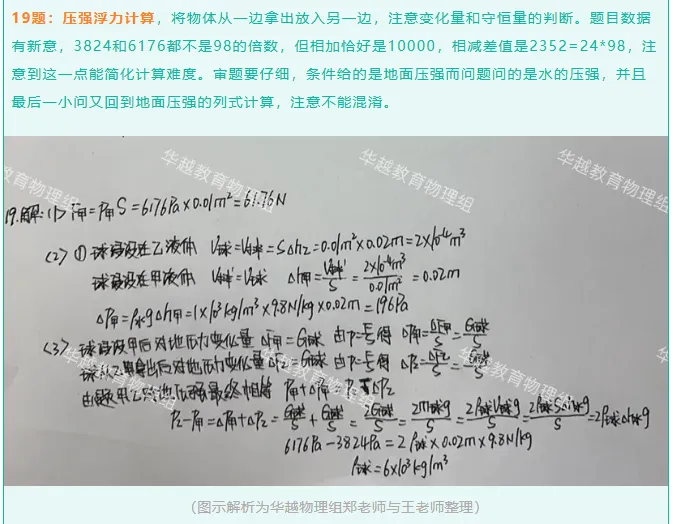 19题：压强浮力计算，将物体从一边拿出放入另一边，注意变化量和守恒量的判断。题目数据
有新意，3824和6176都不是98的倍数，但相加恰好是10000，相减差值是2352=24*98，注
意到这一点能简化计算难度。审题要仔细，条件给的是地面压强而问题问的是水的压强，并且
最后一小问又回到地面压强的列式计算，注意不能混淆。
华越教育物理组
华越教育物理组
华越教育物理组
19.解:(1) F甲=P甲S=6176Pa×0.01m²=61.76N
(2) ① 球浸没在乙液体 V球=V排=SΔh乙=0.01m²×0.02m=2×10⁻⁴m³
球浸没在甲液体 V排'=V球 Δh甲=V排'/S=2×10⁻⁴m³/0.01m²=0.02m
ΔP甲=ρ水gΔh甲=1×10³kg/m³×9.8N/kg×0.02m=196Pa
(3) 球浸没甲后对地压力变化量ΔF甲=G球 由P=F/S得 ΔP甲=ΔF甲/S=G球/S
球从乙中拿出后对地压力变化量ΔF乙=G球 由P=F/S得 ΔP乙=ΔF乙/S=G球/S
由题甲乙对地压强最终相等 P甲+ΔP甲=P乙-ΔP乙
P乙-P甲=ΔP甲+ΔP乙=G球/S+G球/S=2G球/S=2m球g/S=2ρ球V球g/S=2ρ球SΔh球g/S=2ρ球Δh球g
6176Pa-3824Pa=2ρ球×0.02m×9.8N/kg
ρ球=6×10³kg/m³
（图示解析为华越物理组郑老师与王老师整理）